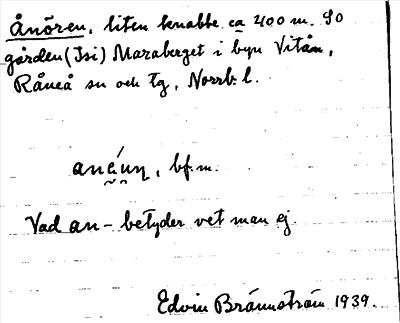 Ånören, liten knabbe ca 400 m. SO
gården (Isi) Maraberget i byn Vitån,
Råneå sn och tg, Norrb. l.
bf. m.
Vad an- betyder vet man ej.
Edvin Brännström 1939.